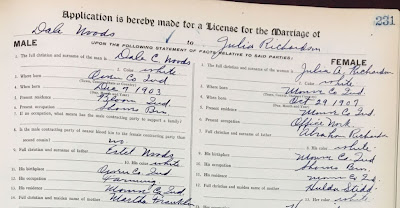 Application is hereby made for a License for the Marriage of
231
Dale Woods to Julia Richardson
UPON THE FOLLOWING STATEMENT OF FACTS RELATIVE TO SAID PARTIES:
MALE
1. The full christian and surname of the man is Dale C. Woods
2. Color white
3. Where born Owen Co Ind
4. When born Dec 7 1903
5. Present residence Ind
6. Present occupation
7. If no occupation, what means has the male contracting party to support a family?
8. Is the male contracting party of nearer blood kin to the female contracting party than second cousin? no
9. Full christian and surname of father Estel Woods
10. His color white
11. His birthplace Owen Co. Ind
12. His occupation Farming
13. His residence Monroe Co Ind
14. Full christian and maiden name of mother Martha Franklin
FEMALE
1. The full christian and surname of the woman is Julia A. Richardson
2. Color white
3. Where born Monroe Co Ind
4. When born Oct 29 1907
5. Present residence Monroe Co Ind
6. Present occupation Office Work
7. Full christian and surname of father Abraham Richardson
8. His color white
9. His birthplace Monroe Co Ind
10. His occupation
11. His residence Monroe Co Ind
12. Full christian and maiden name of mother Hulda
13. Her color white